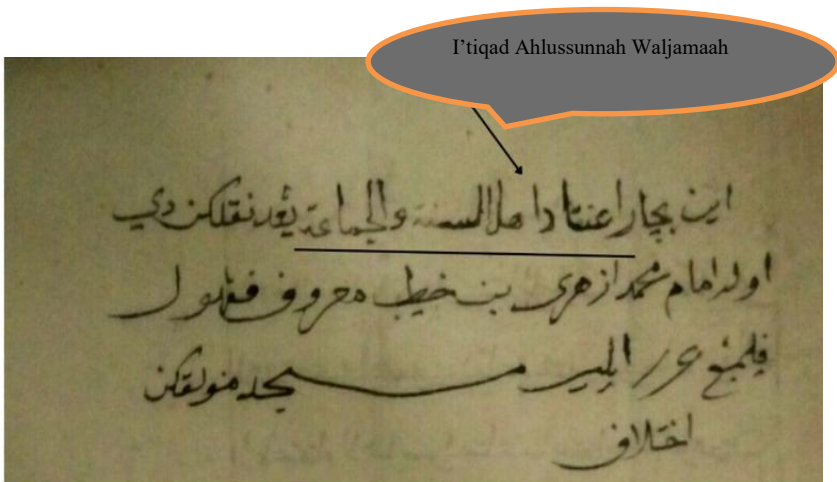 I’tiqad Ahlussunnah Waljamaah
اين بچارا عتقاد اهل السنة والجماعة يڠدنقلكن دي
اوله امام محمد ازهري بن خطيب معروف فڠهولو
فلمبڠ مسجد منولقكن
اختلاف